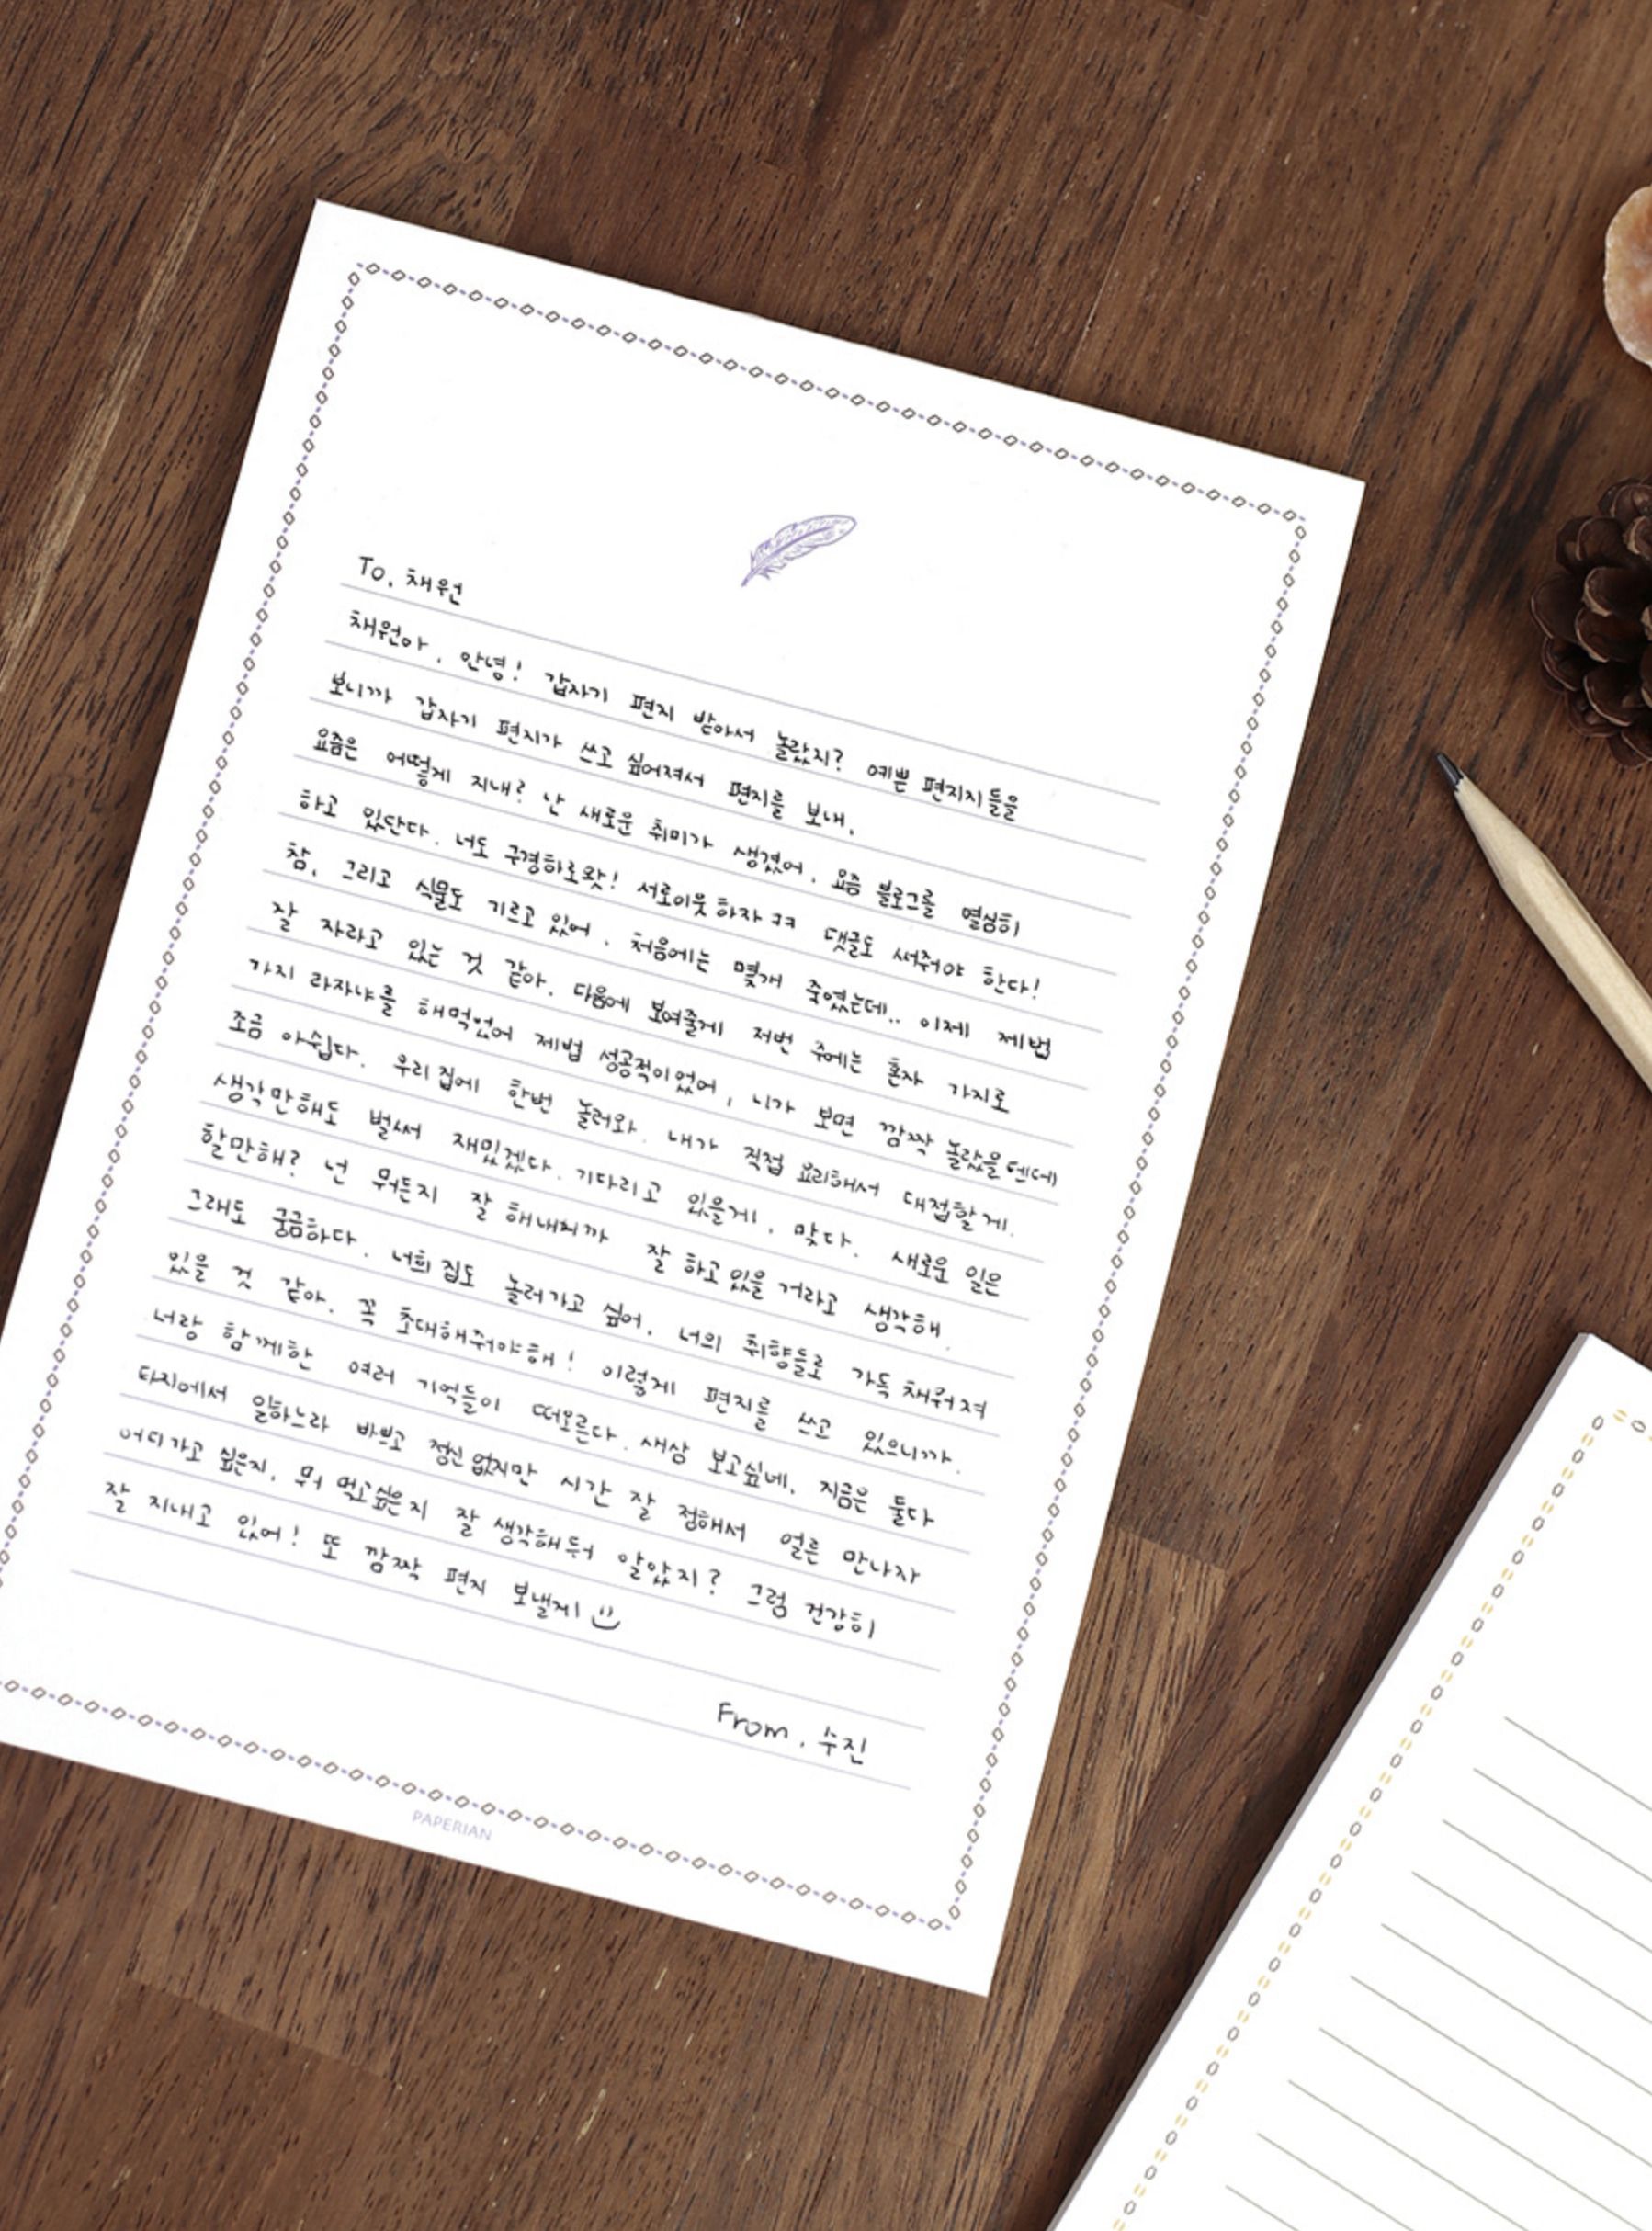 To. 채원
채원아, 안녕! 갑자기 편지 받아서 놀랐지? 예쁜 편지지들을
보니까 갑자기 편지가 쓰고 싶어져서 편지를 보내.
요즘은 어떻게 지내? 난 새로운 취미가 생겼어. 요즘 블로그를 열심히
하고 있단다. 너도 구경하로왓! 서로이웃 하자 ㅋㅋ 댓글도 써줘야 한다!
참, 그리고 식물도 기르고 있어. 처음에는 몇개 죽였는데.. 이제 제법
잘 자라고 있는 것 같아. 다음에 보여줄게 저번 주에는 혼자 가지로
가지 라자냐를 해먹었어 제법 성공적이었어, 니가 보면 깜짝 놀랐을텐데
조금 아쉽다. 우리집에 한번 놀러와. 내가 직접 요리해서 대접할게.
생각만해도 벌써 재밌겠다. 기다리고 있을게. 맞다. 새로운 일은
할만해? 넌 뭐든지 잘 해내니까 잘 하고 있을 거라고 생각해.
그래도 궁금하다. 너희 집도 놀러가고 싶어. 너의 취향들로 가득 채워져
있을 것 같아. 꼭 초대해줘야해! 이렇게 편지를 쓰고 있으니까.
너랑 함께한 여러 기억들이 떠오른다. 새삼 보고싶네. 지금은 둘다
타지에서 일하느라 바쁘고 정신 없지만 시간 잘 정해서 얼른 만나자
어디가고 싶은지, 뭐 먹고싶은지 잘 생각해둬 알았지? 그럼 건강히
잘 지내고 있어! 또 깜짝 편지 보낼게
From. 수진
PAPERIAN